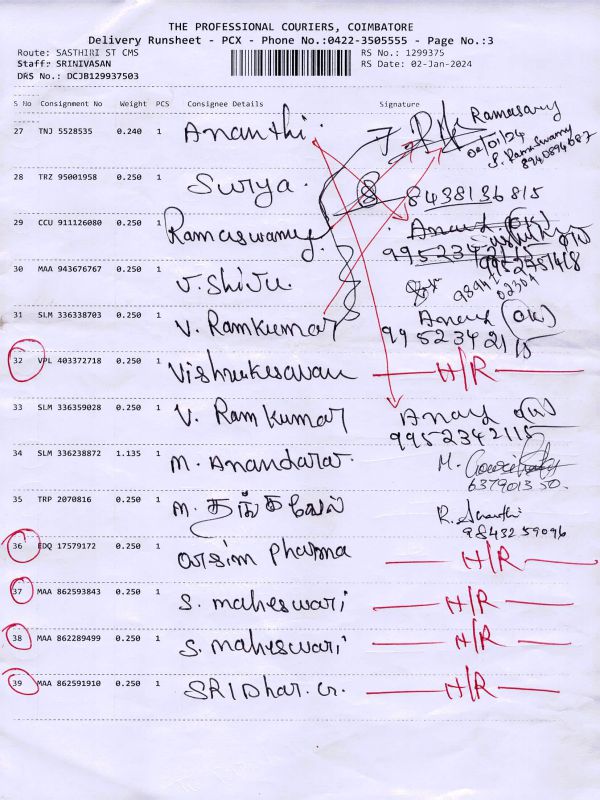 THE PROFESSIONAL COURIERS, COIMBATORE
Delivery Runsheet - PCX - Phone No.:0422-3505555 - Page No.:3
Route: SASTHIRI ST CMS RS No.: 1299375
Staff: SRINIVASAN RS Date: 02-Jan-2024
DRS No.: DCJB129937503
S No Consignment No Weight PCS Consignee Details Signature
27 TNJ 5528535 0.240 1 Ananthi Ramasamy
02/01/24
S. Ramaswamy
8940894687
28 TRZ 95001958 0.250 1 Surya 8438136815
29 CCU 911126080 0.250 1 Ramaswamy
30 MAA 943676767 0.250 1 V. Shivu
31 SLM 336338703 0.250 1 V. Ramkumar Anand (OK)
9952342115
32 VPL 403372718 0.250 1 Vishnukesavan H/R
33 SLM 336359028 0.250 1 V. Ram kumar Anand
9952342115
34 SLM 336238872 1.135 1 M. Anandarar M.
637901350.
35 TRP 2070816 0.250 1 M. தங்கவேல் R. Ananthi
9843259096
36 EDQ 17579172 0.250 1 Pharma H/R
37 MAA 862593843 0.250 1 S. maheswari H/R
38 MAA 862289499 0.250 1 S. maheswari H/R
39 MAA 862591910 0.250 1 SRIDhar. G. H/R